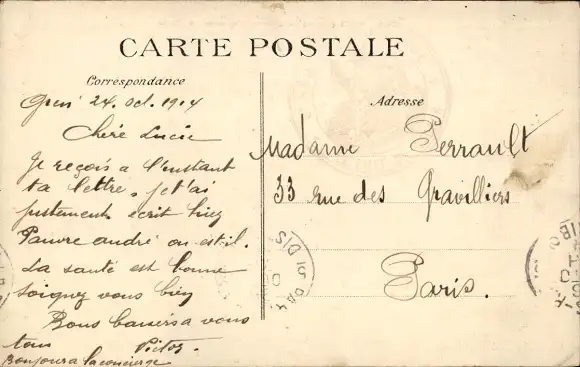 CARTE POSTALE
Correspondance
24. oct. 1914
Chère Lucie
Je reçois a l'instant
ta lettre, je t'ai
justement écrit hier
Pauvre andré ou est-il.
La santé est bonne
Soignez vous bien
Bons baisers a vous
tous
Bonjour a la concierge
Adresse
Madame Perrault
33 rue des Gravilliers
Paris.